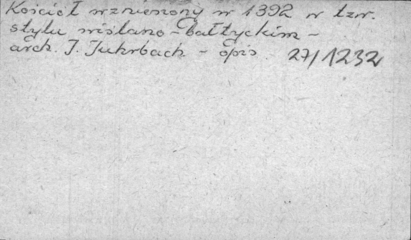 Kościół wzniesiony w 1392 w tzw.
stylu wiślano-bałtyckim -
arch. J. Juhrbach - opis 27/1232